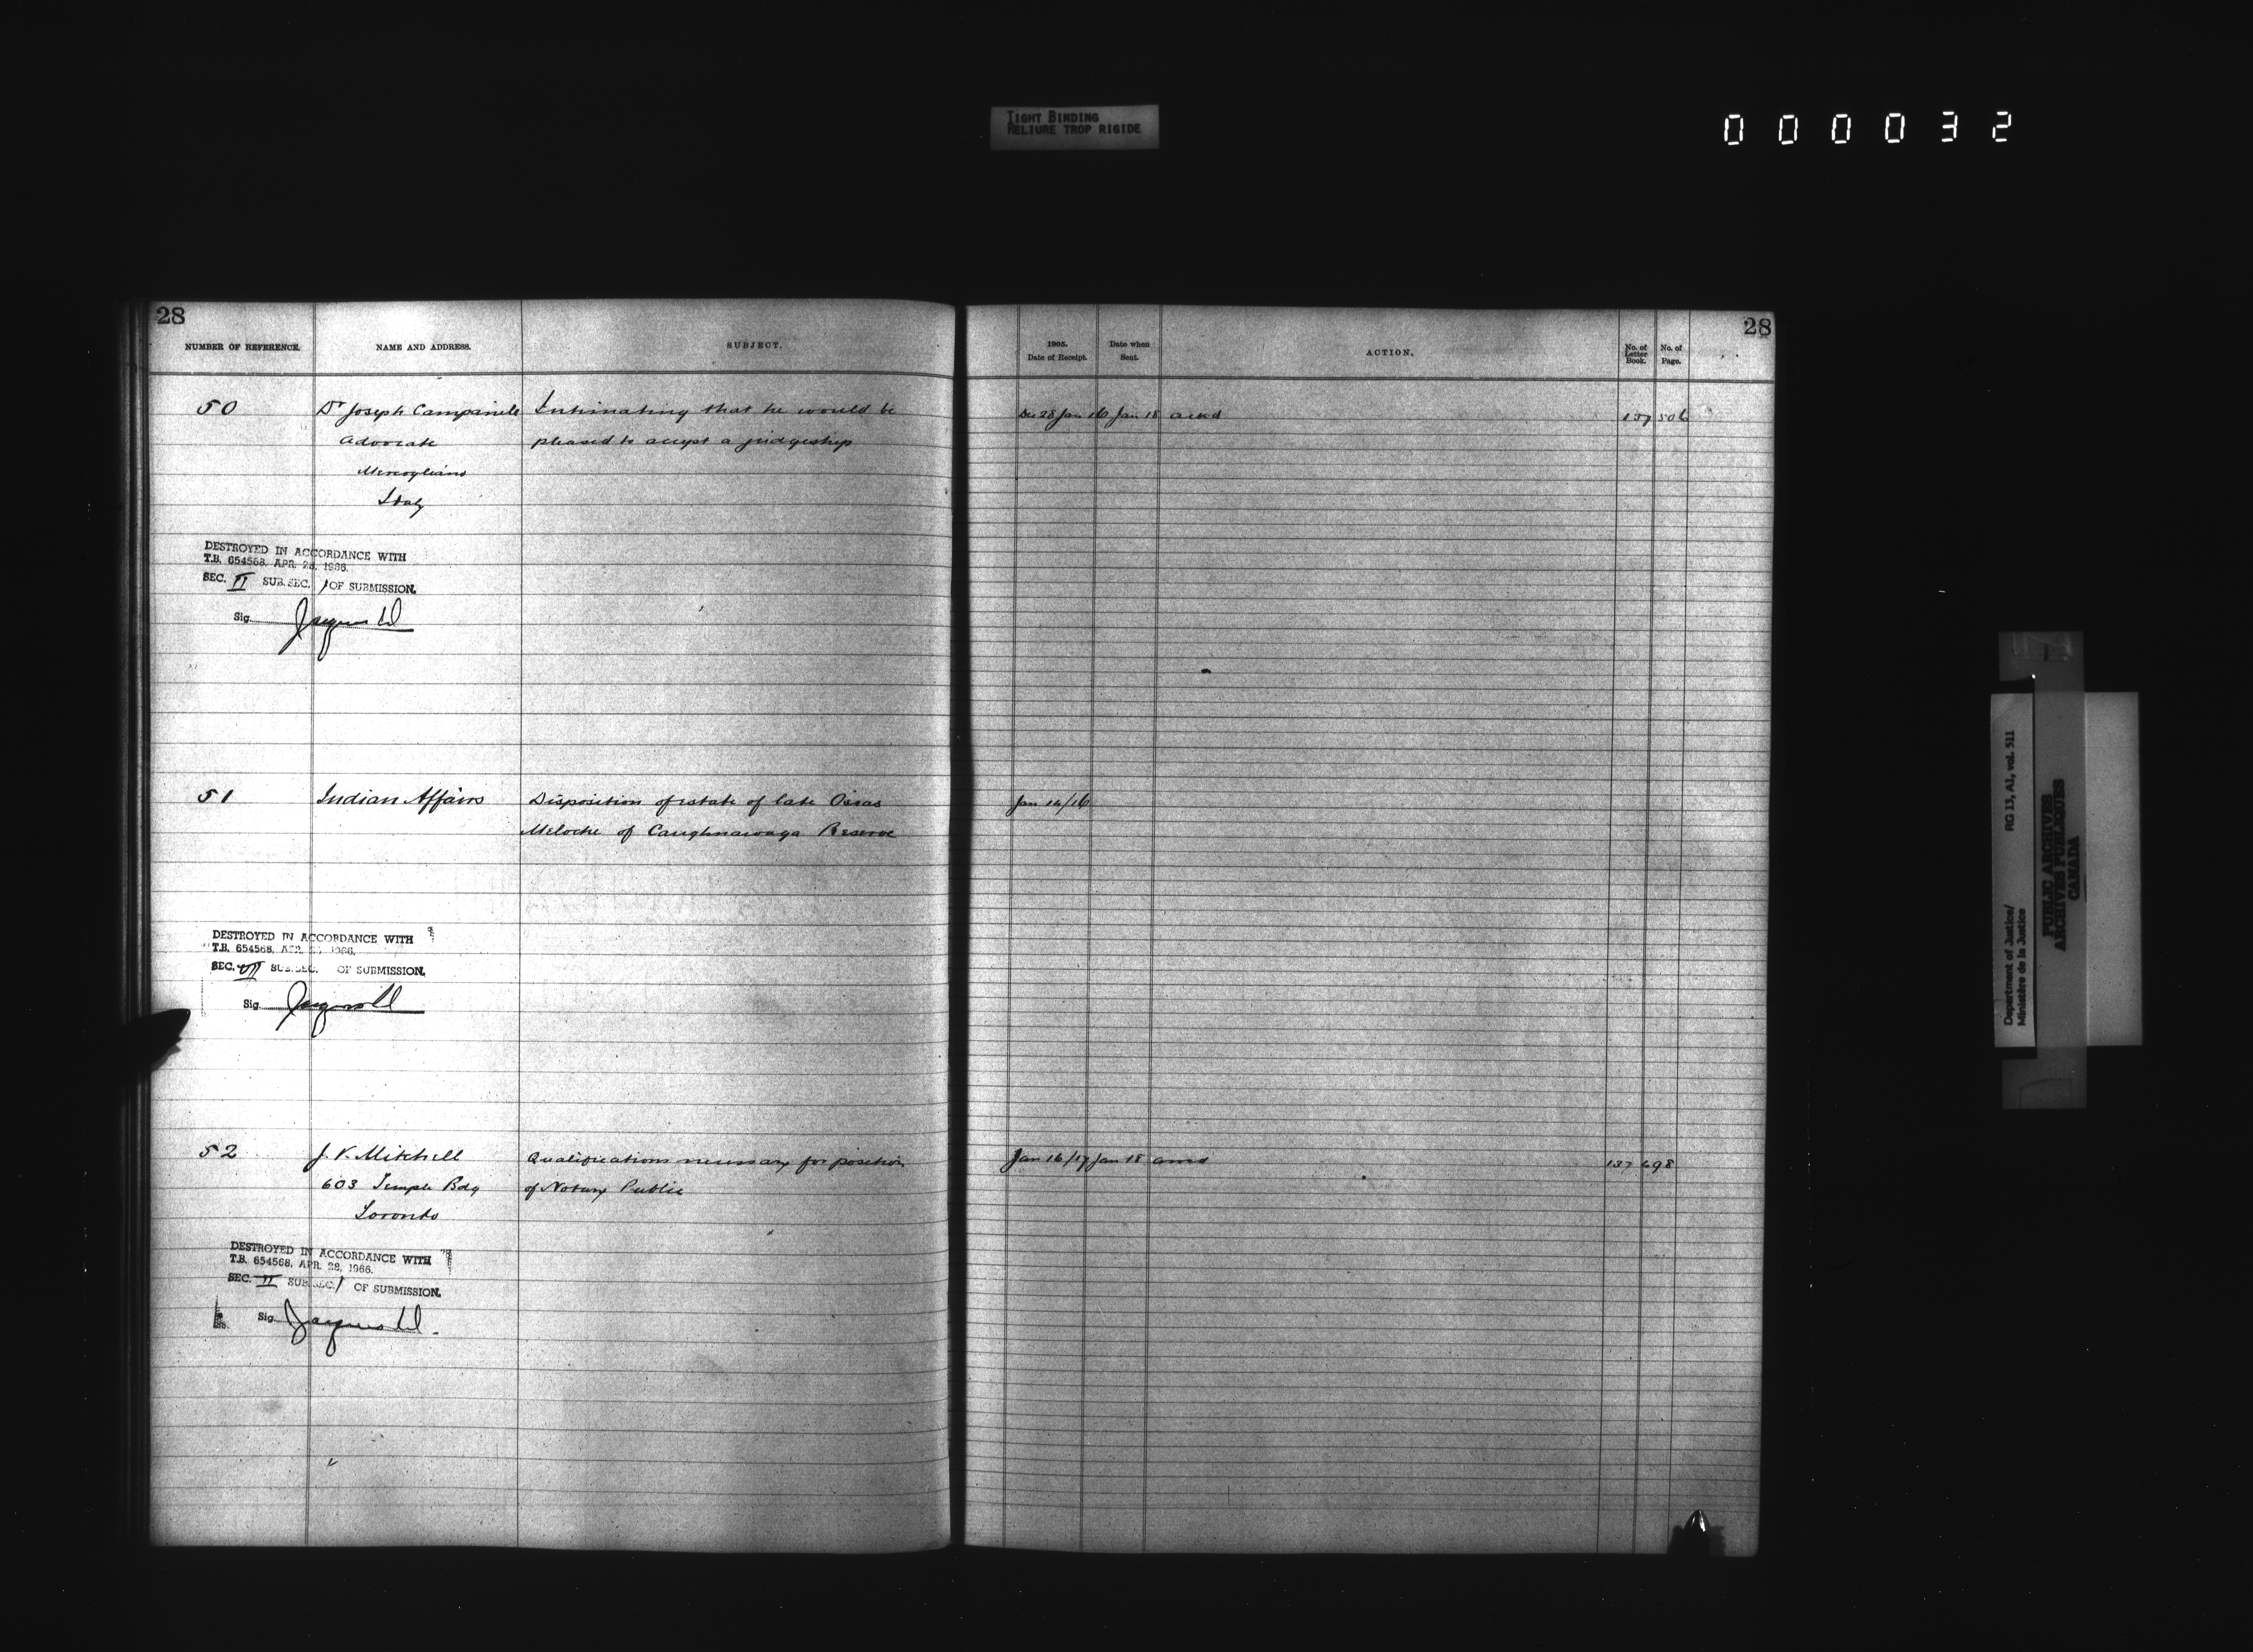 TIGHT BINDING
RELIURE TROP RIGIDE
000032
28
NUMBER OF REFERENCE.
NAME AND ADDRESS.
SUBJECT.
50
Dr Joseph Campanile
Intimating that he would be
Advocate
pleased to accept a judgeship
Mercogliano
Italy
DESTROYED IN ACCORDANCE WITH
T.B. 654568, APR. 28, 1966.
SEC. II SUB.SEC. 1 OF SUBMISSION.
Sig.
51
Indian Affairs
Disposition of estate of late Osias
Meloche of Caughnawaga Reserve
DESTROYED IN ACCORDANCE WITH
T.B. 654568, APR. 1966.
SEC. VII SUB.SEC. OF SUBMISSION.
Sig.
52
J. V. Mitchell
Qualifications necessary for position
603 Temple Bdg
of Notary Public
Toronto
DESTROYED IN ACCORDANCE WITH
T.B. 654568, APR. 28, 1966.
SEC. II SUB.SEC. 1 OF SUBMISSION.
Sig.
28
1905.
Date of Receipt.
Date when
Sent.
ACTION.
No. of
Letter
Book.
No. of
Page.
Dec 28 Jan 16 Jan 18 ackd 137 506
Jan 14/16
Jan 16/17 Jan 18 ansd 137 498
Department of Justice/ RG 13, A1, vol. 511
Ministère de la Justice
PUBLIC ARCHIVES
ARCHIVES PUBLIQUES
CANADA